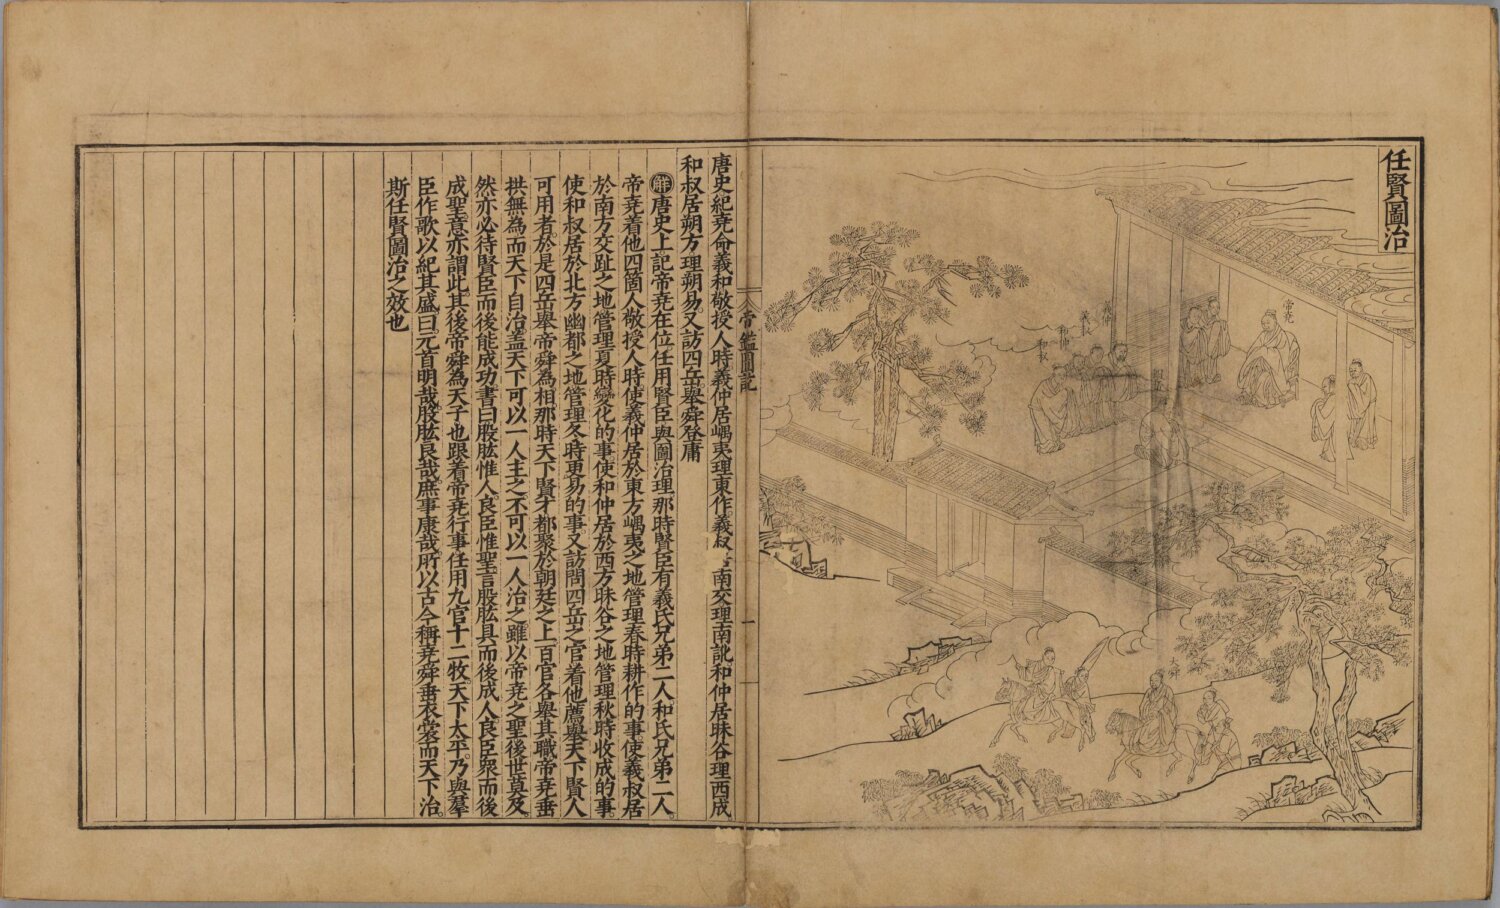 任賢圖治
帝堯
羲叔
和仲
和叔
大舜
唐史紀堯命羲和敬授人時羲仲居嵎夷理東作羲叔居南交理南訛和仲居昧谷理西成
和叔居朔方理朔易又訪四岳舉舜登庸
解唐史上記帝堯在位任用賢臣與圖治理那時賢臣有羲氏兄弟二人和氏兄弟二人
帝堯着他四箇人敬授人時使羲仲居於東方嵎夷之地管理春時耕作的事使羲叔居
於南方交趾之地管理夏時變化的事使和仲居於西方昧谷之地管理秋時收成的事
使和叔居於北方幽都之地管理冬時更易的事又訪問四岳之官着他薦舉天下賢人
可用者於是四岳舉帝舜為相那時天下賢才都聚於朝廷之上百官各舉其職帝堯垂
拱無為而天下自治盖天下可以一人主之不可以一人治之雖以帝堯之聖後世莫及
然亦必待賢臣而後能成功書曰股肱惟人良臣惟聖言股肱具而後成人良臣衆而後
成聖意亦謂此其後帝舜為天子也跟着帝堯行事任用九官十二牧天下太平乃與羣
臣作歌以紀其盛曰元首明哉股肱良哉庶事康哉所以古今稱堯舜垂衣裳而天下治
斯任賢圖治之效也
帝鑑圖說
一